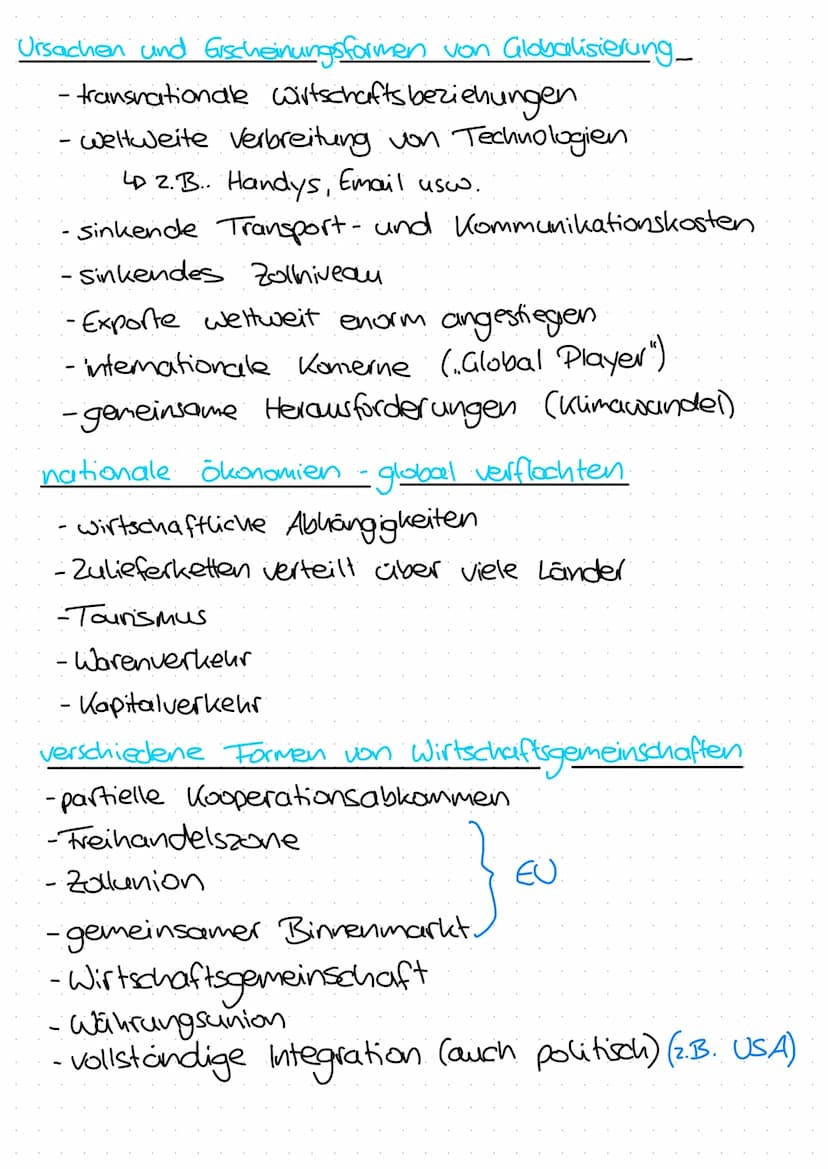 Ursachen und Erscheinungsformen von Globalisierung
- transnationale Wirtschaftsbeziehungen
- weltweite Verbreitung von Technologien
↳ z.B.. Handys, Email usw.
- sinkende Transport- und Kommunikationskosten
- sinkendes Zollniveau
- Exporte weltweit enorm angestiegen
- internationale Konzerne („Global Player")
- gemeinsame Herausforderungen (Klimawandel)
nationale ökonomien - global verflochten
- wirtschaftliche Abhängigkeiten
- Zulieferketten verteilt über viele Länder
- Tourismus
- Warenverkehr
- Kapitalverkehr
verschiedene Formen von Wirtschaftsgemeinschaften
- partielle Kooperationsabkommen
- Freihandelszone
- Zollunion
EU
- gemeinsamer Binnenmarkt
- Wirtschaftsgemeinschaft
- Währungsunion
- vollständige Integration (auch politisch) (z.B. USA)